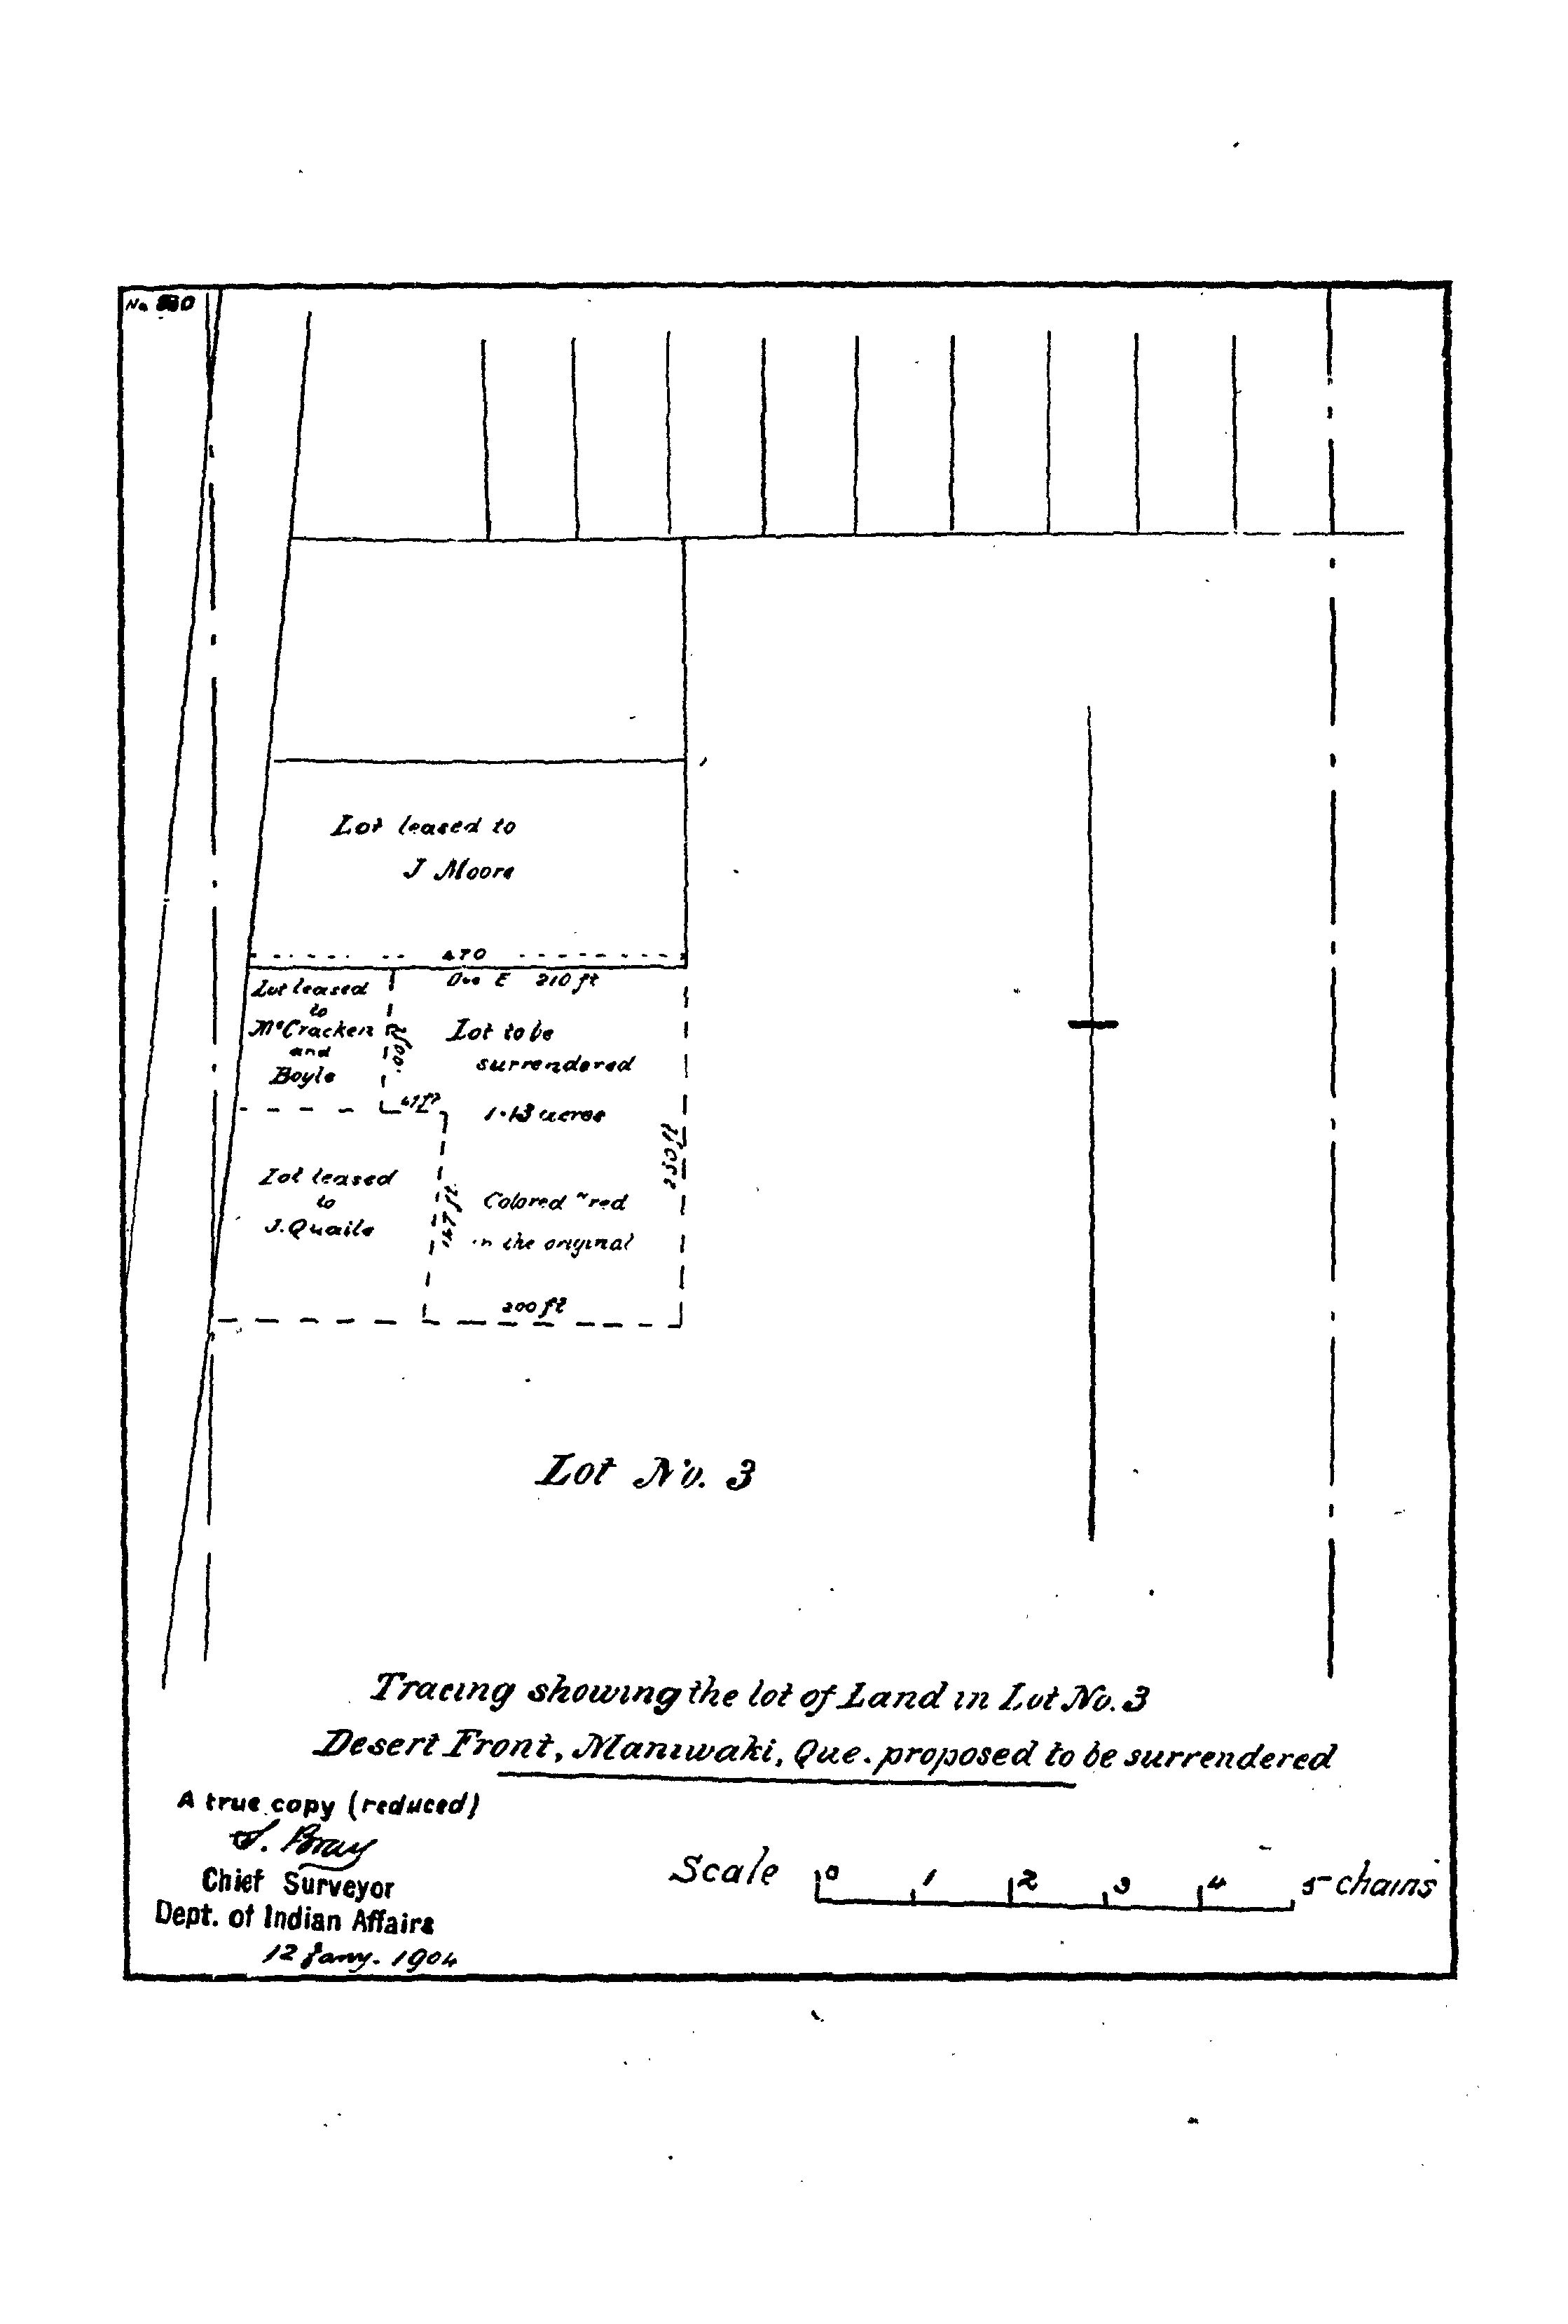 Lot leased to
J Moore
470
Due E 210 ft
Lot leased
to
McCracken
and
Boyle
Lot to be
surrendered
1.13 acres
Lot leased
to
J. Quaile
147 ft
Colored red
in the original
200 ft
Lot No. 3
Tracing showing the lot of Land in Lot No. 3
Desert Front, Maniwaki, Que. proposed to be surrendered
A true copy (reduced)
S. Bray
Chief Surveyor
Dept. of Indian Affairs
12 Jany. 1904
Scale 0 1 2 3 4 5 chains